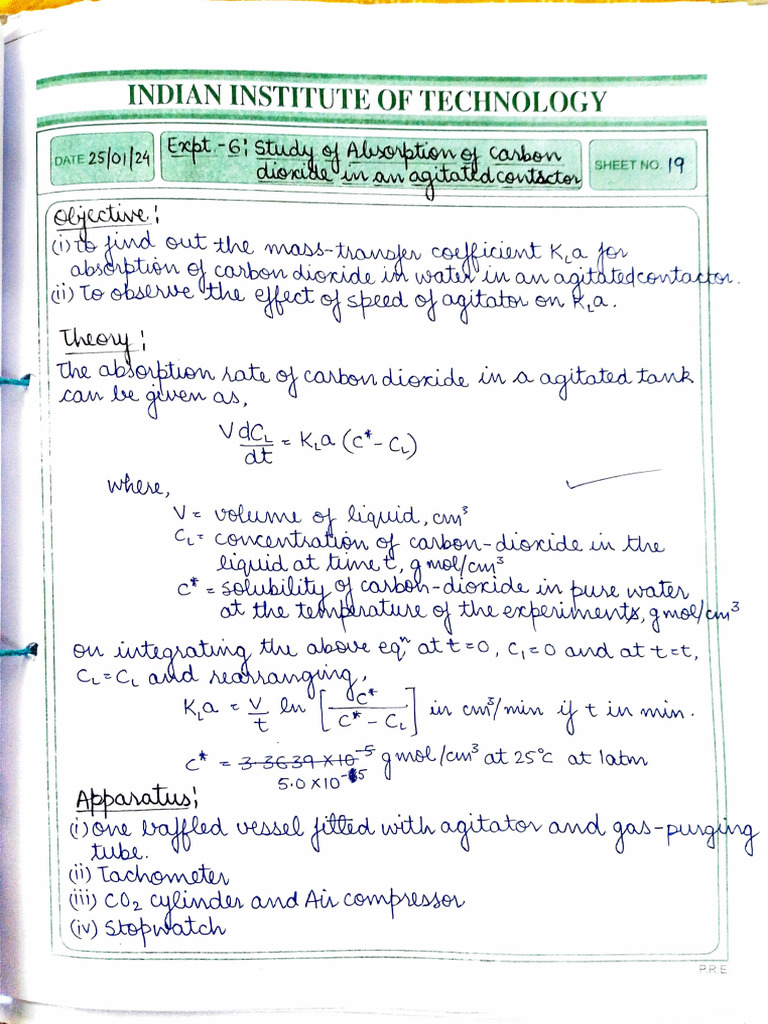 INDIAN INSTITUTE OF TECHNOLOGY
DATE 25/01/24
Expt.-6: Study of Absorption of carbon
dioxide in an agitated contactor
SHEET NO. 19
Objective:
(i) to find out the mass-transfer coefficient KLa for
absorption of carbon dioxide in water in an agitated contactor.
(ii) To observe the effect of speed of agitator on KLa.
Theory:
The absorption rate of carbon dioxide in a agitated tank
can be given as,
V dCL/dt = KLa (C* - CL)
where,
V = volume of liquid, cm³
CL = concentration of carbon-dioxide in the
liquid at time t, g mol/cm³
C* = solubility of carbon-dioxide in pure water
at the temperature of the experiments, g mol/cm³
on integrating the above eqⁿ at t=0, C₁=0 and at t=t,
CL=CL and rearranging,
KLa = V/t ln [C*/(C* - CL)] in cm³/min if t in min.
C* = 3.3639×10⁻⁵ g mol/cm³ at 25°C at 1atm
5.0×10⁻⁵
Apparatus:
(i) one baffled vessel fitted with agitator and gas-purging
tube.
(ii) Tachometer
(iii) CO₂ cylinder and Air compressor
(iv) Stopwatch
P.R.E.